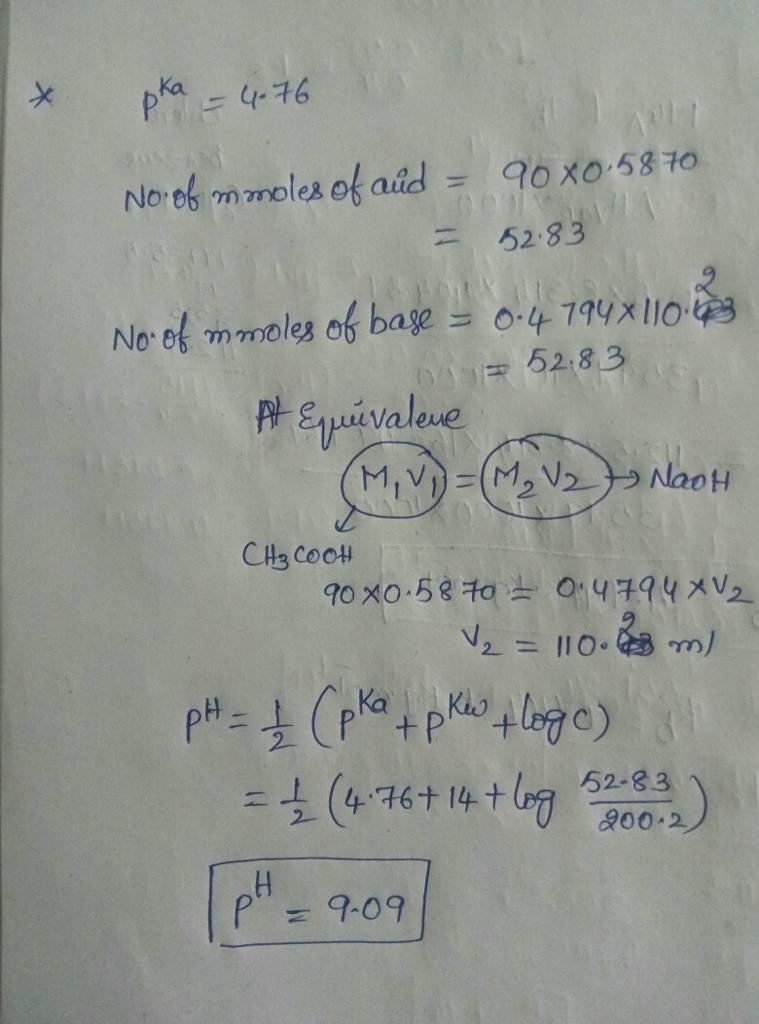 * pKa = 4.76
No. of mmoles of acid = 90 x 0.5870
= 52.83
No. of mmoles of base = 0.4794 x 110.2
= 52.83
At Equivalene
M₁V₁ = M₂V₂ → NaoH
CH3COOH
90 x 0.5870 = 0.4794 x V2
V2 = 110.2 ml
pH = 1/2 (pKa + pKw + log c)
= 1/2 (4.76 + 14 + log 52.83/200.2)
pH = 9.09